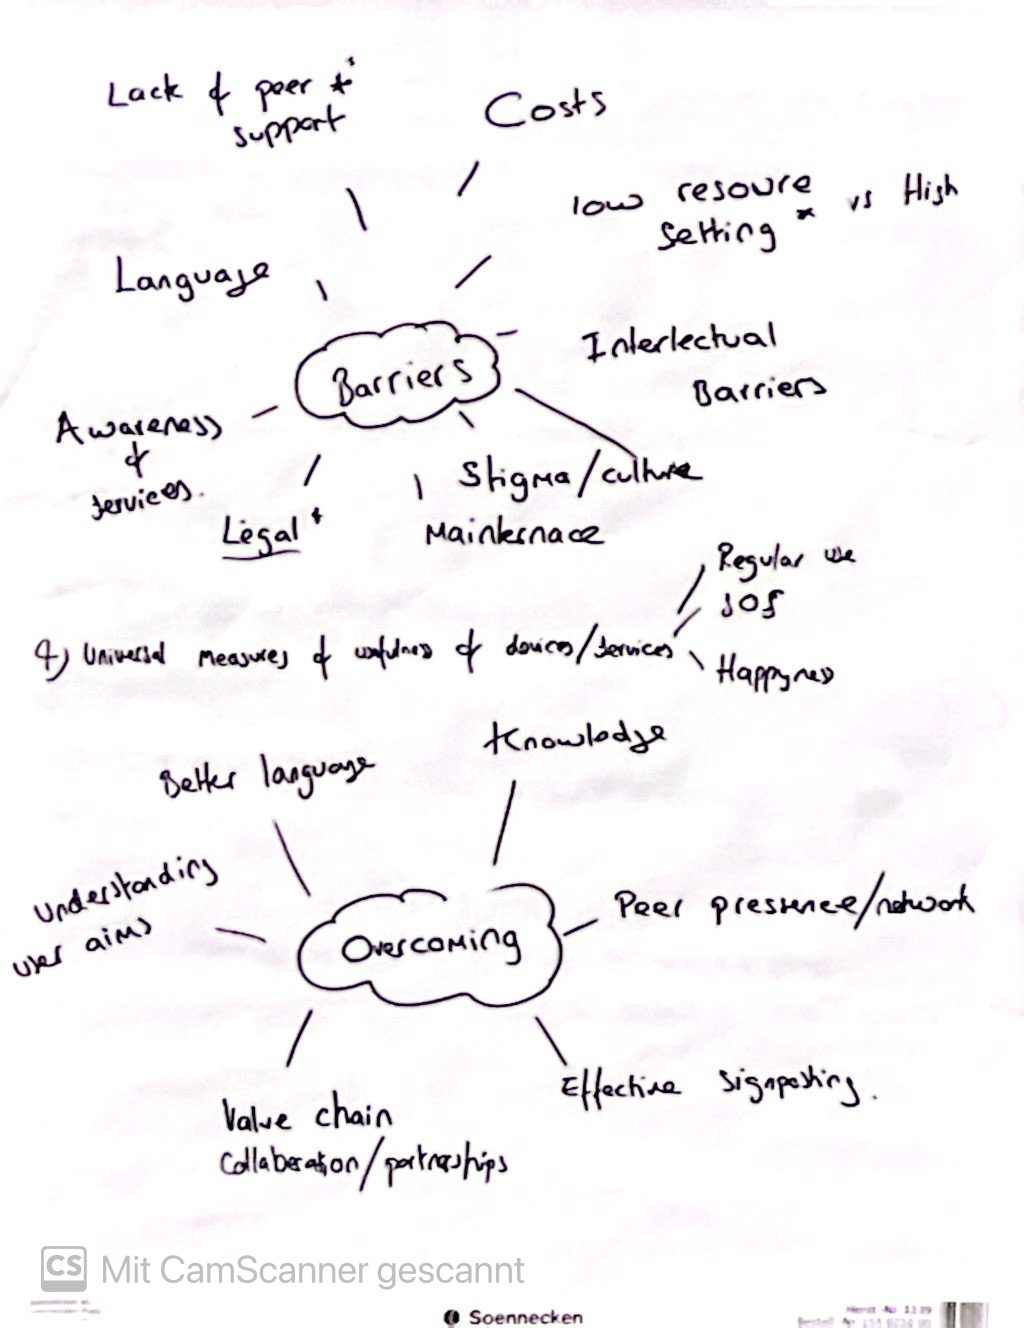 Lack of peer *
support
Costs
low resoure vs High
setting *
Language
Interlectual
Barriers
Barriers
Awareness
of
services.
Stigma/culture
Legal *
Mainternace
Regular use
SOS
4) Universal measures of usefulness of devices/services
Happyness
Knowledge
Better language
Understanding
user aims
Peer pressence/network
Overcoming
Effective signposting.
Value chain
Collaberation/partnerships
CS Mit CamScanner gescannt
Soennecken